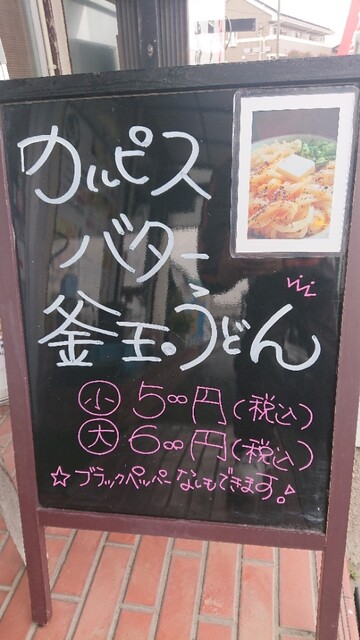 カルピス
バター
釜玉うどん
小 500円(税込)
大 600円(税込)
☆ブラックペッパーなしもできます!